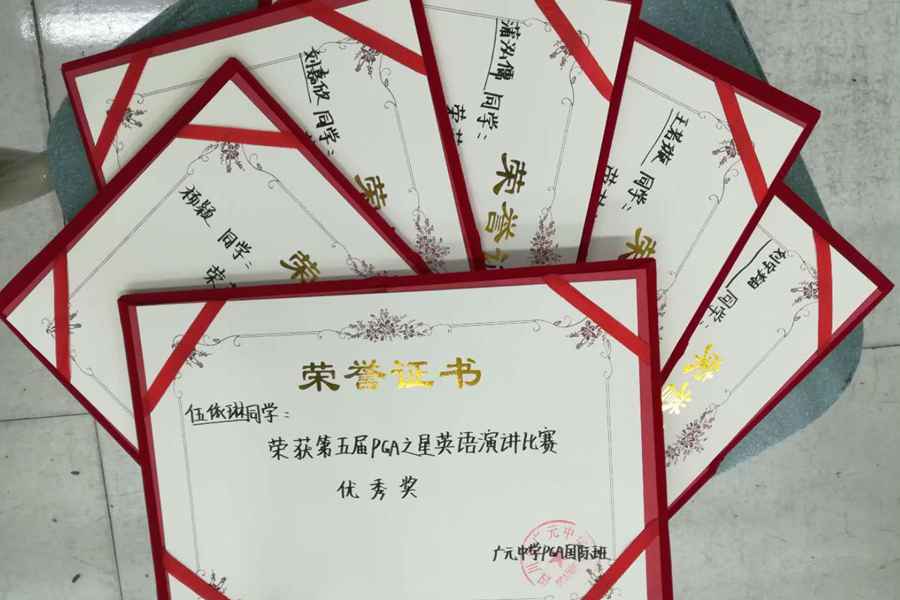 荣誉证书
伍依琳同学：
荣获第五届PGA之星英语演讲比赛
优秀奖
广元中学PGA国际班
杨颖 同学：
荣
荣
刘嘉欣 同学：
荣
蒲泓儒 同学：
荣获
荣誉证
同学：
荣获
荣
同学：
荣誉